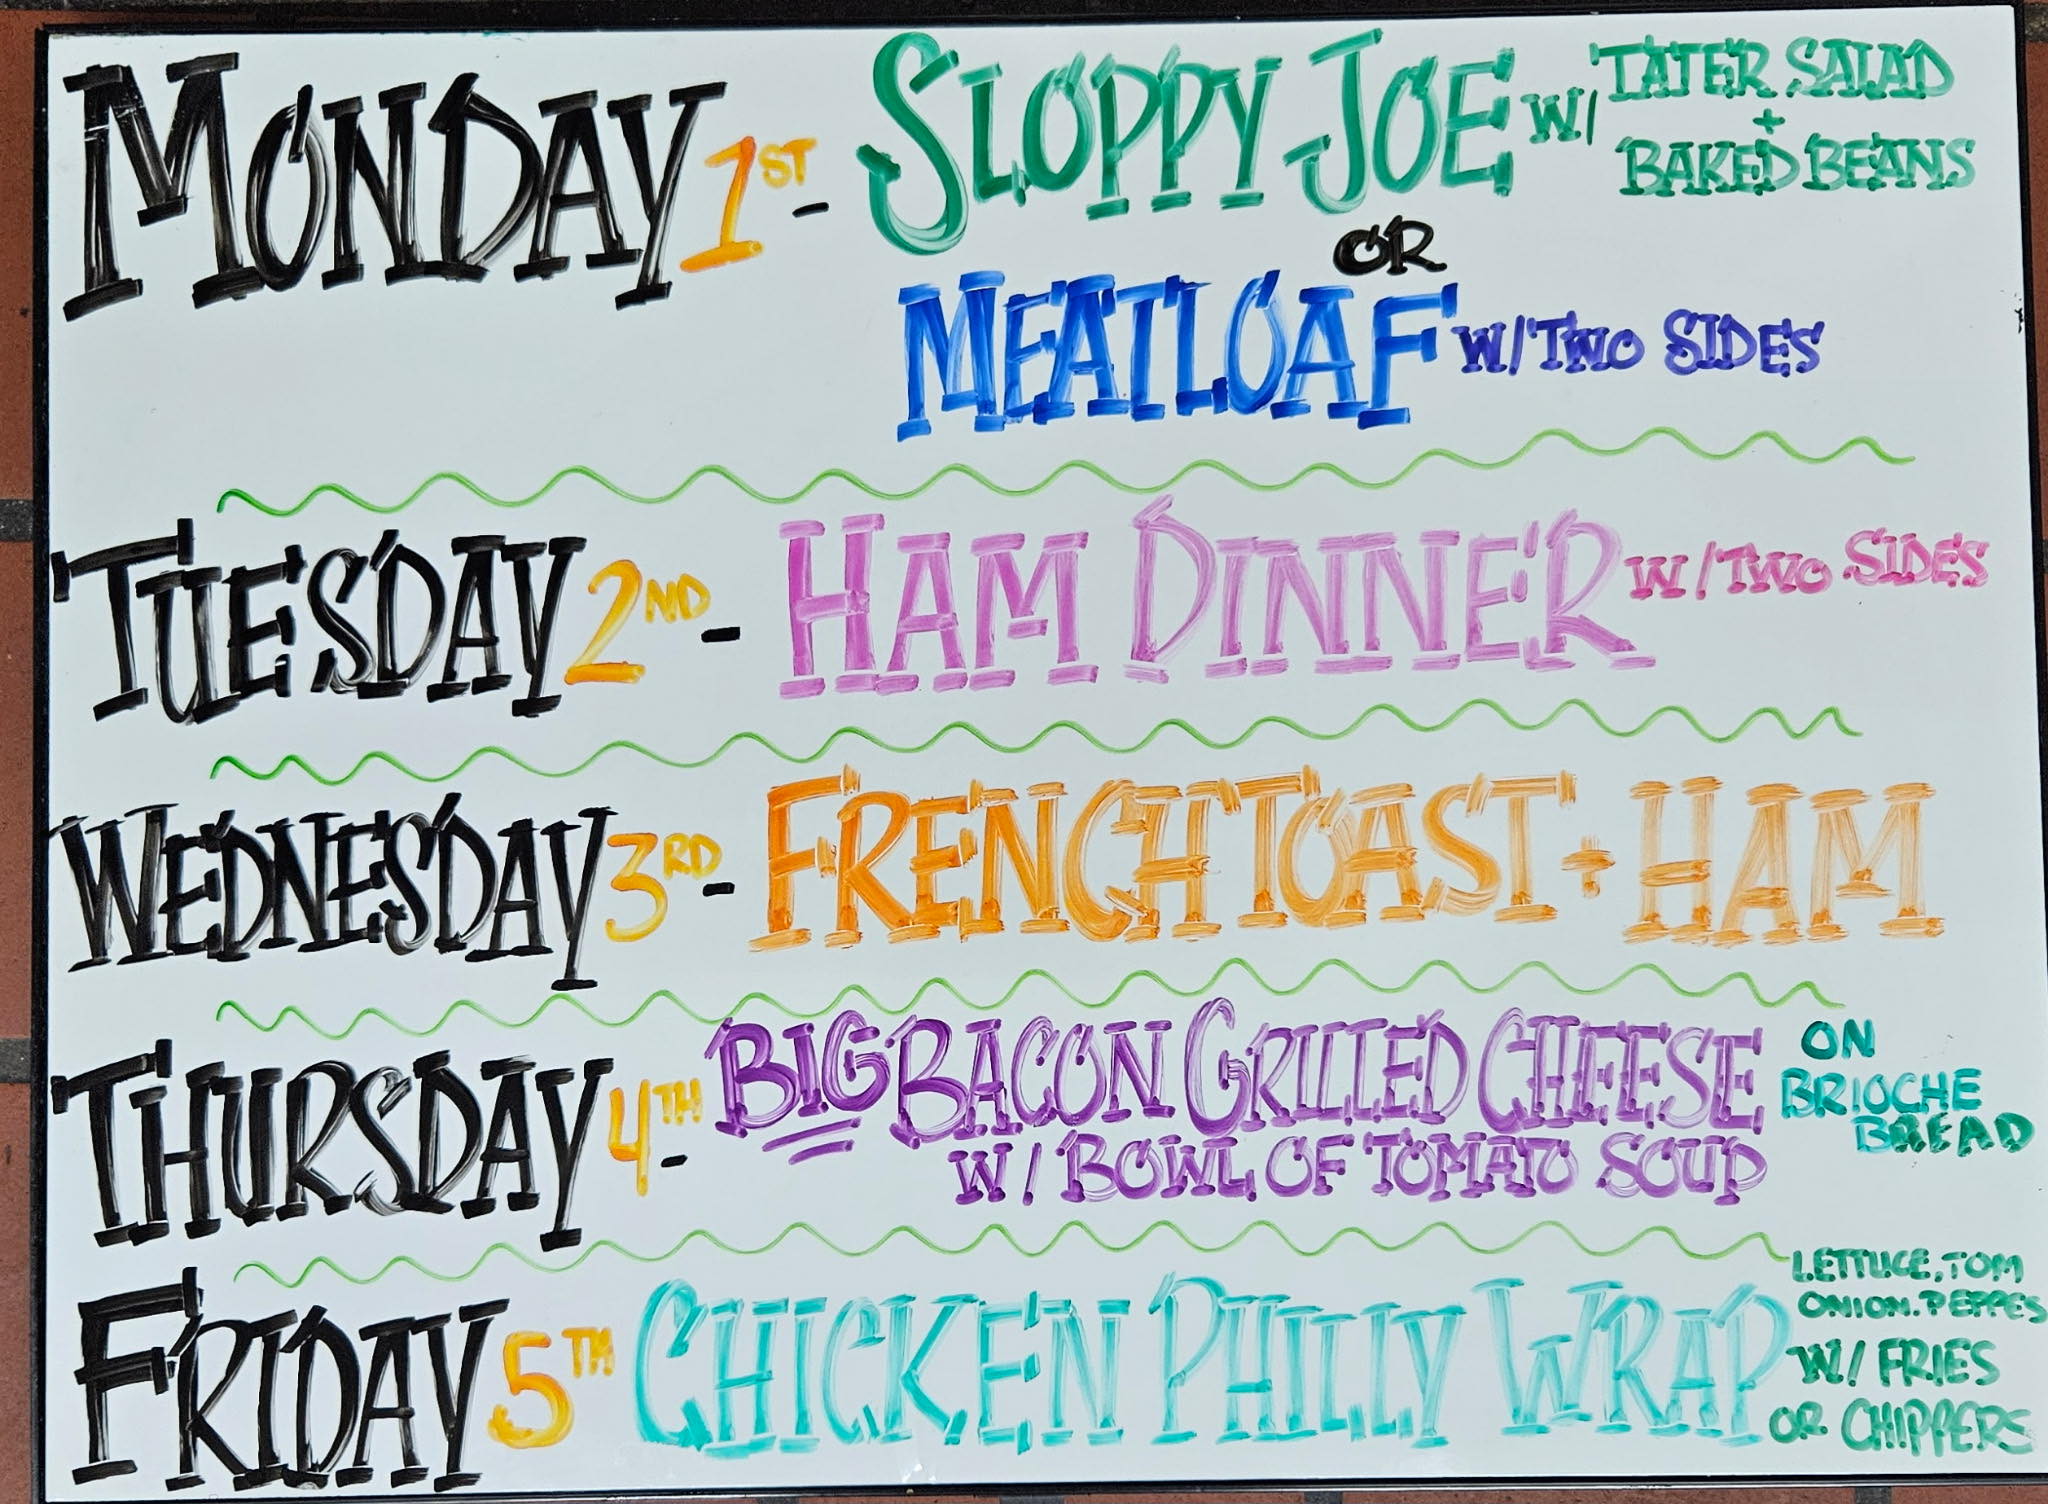 MONDAY 1ST - SLOPPY JOE W/ TATER SALAD
+
BAKED BEANS
OR
MEATLOAF W/ TWO SIDES
TUESDAY 2ND - HAM DINNER W/ TWO SIDES
WEDNESDAY 3RD - FRENCH TOAST + HAM
THURSDAY 4TH - BIG BACON GRILLED CHEESE
W/ BOWL OF TOMATO SOUP
ON
BRIOCHE
BREAD
FRIDAY 5TH CHICKEN PHILLY WRAP
LETTUCE, TOM
ONION. PEPPES
W/ FRIES
OR CHIPPERS